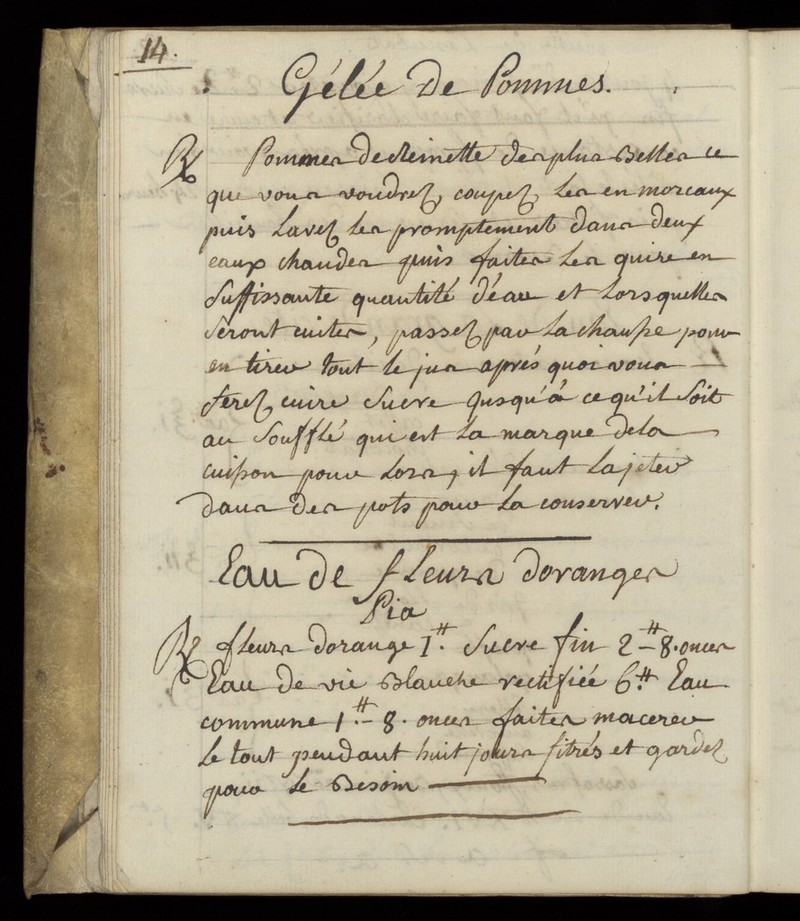 14.
Gélée De Pommes.
Rx Pommes de Reinette des plus Belles ce
que vous voudrez, coupez, les en morceaux
puis Lavez les promptement dans deux
eaux chaudes puis faites les quire en
Suffissante quantité d'éau et Lorsquelles
Seront cuites, passez par La chausse pour
en tirer tout le jus aprés quoi vous
ferez cuire Sucre Jusqu'à ce qu'il Soit
au Soufflé qui est La marque dela
cuisson pour Lors, il faut La jeter
dans des pots pour La conserver.
Eau de fleurs doranges
Rx fleurs dorange 1.# Sucre fin 2 # 8. onces
Eau de vie Blanche rectifiée 6.# Eau
commune 1.# 8. onces faites macerer
Le tout pendant huit jours fitrés et gardez
pour Le Besoin